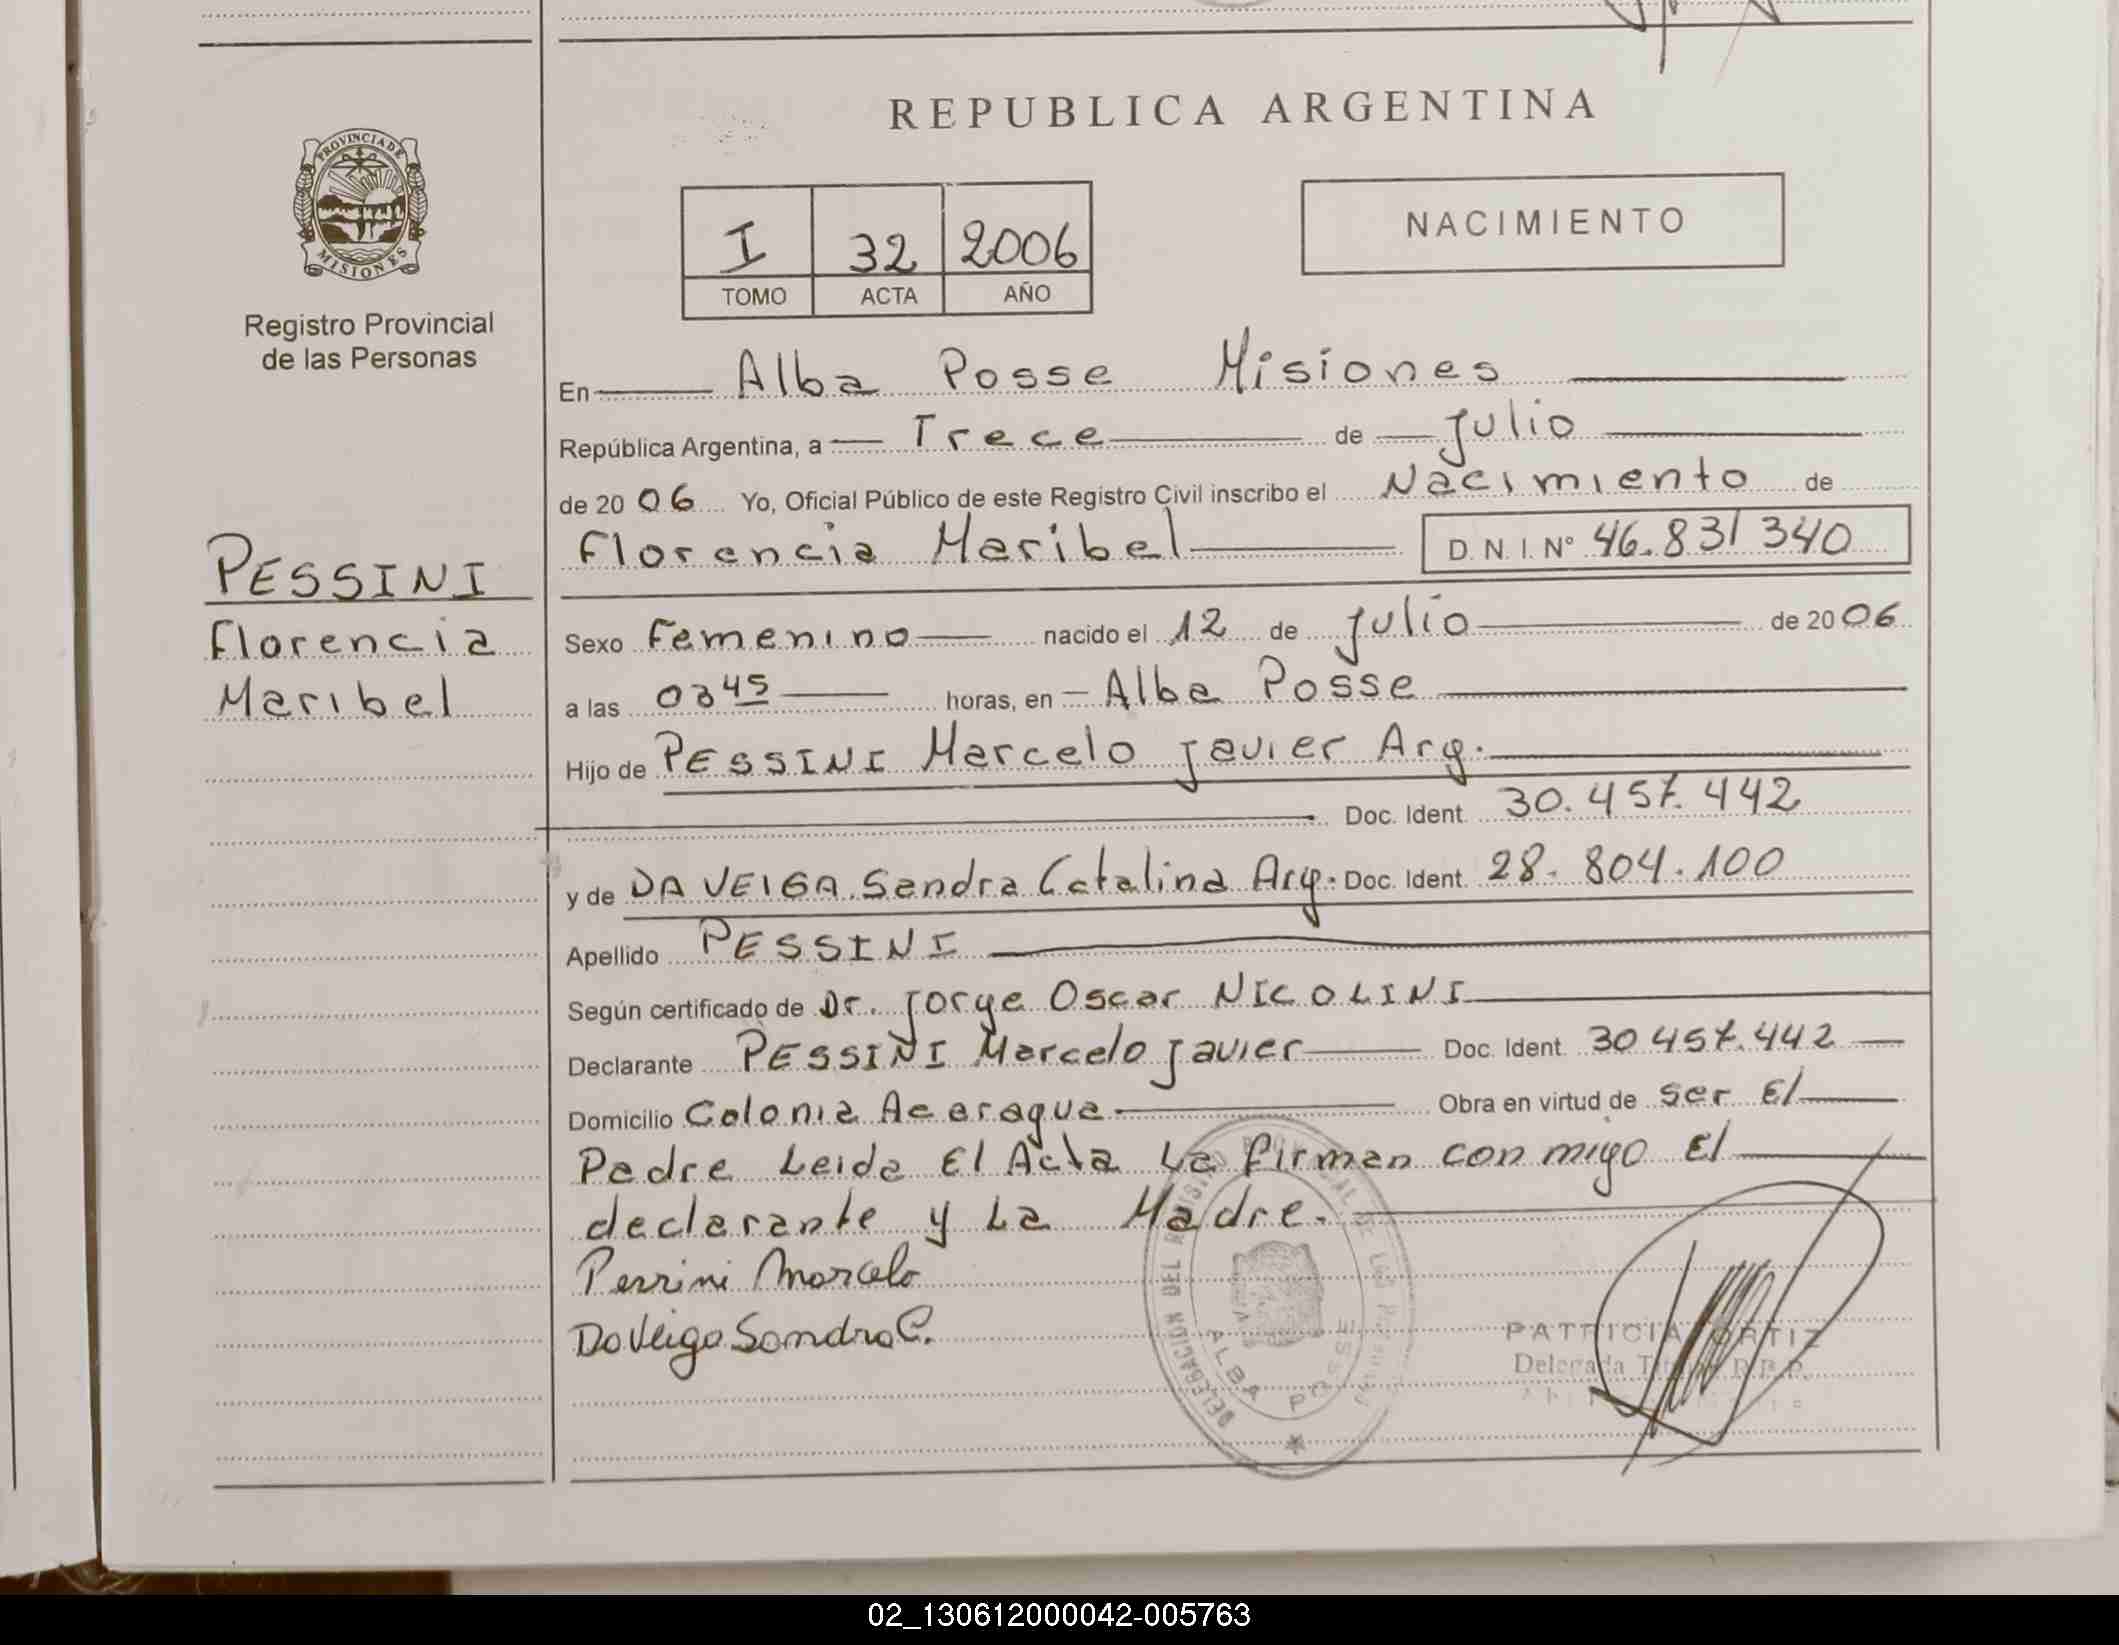 REPUBLICA ARGENTINA
PROVINCIA DE
MISIONES
Registro Provincial
de las Personas
I 32 2006
TOMO ACTA AÑO
NACIMIENTO
En Alba Posse Misiones
República Argentina, a Trece de Julio
de 2006 Yo, Oficial Público de este Registro Civil inscribo el Nacimiento de
Florencia Maribel D. N. I. Nº 46.831340
PESSINI
Florencia
Maribel
Sexo Femenino nacido el 12 de Julio de 2006
a las 0345 horas, en Alba Posse
Hijo de PESSINI Marcelo Javier Arg.
Doc. Ident. 30.457.442
y de DA VEIGA Sandra Catalina Arg. Doc. Ident. 28.804.100
Apellido PESSINI
Según certificado de Dr. Jorge Oscar NICOLINI
Declarante PESSINI Marcelo Javier Doc. Ident. 30 457.442
Domicilio Colonia Acaragua Obra en virtud de ser El
Padre Leida El Acta La firman con migo El
declarante y La Madre.
Pessini Marcelo
Da Veiga Sandra C.
DELEGACION DEL REGISTRO PROVINCIAL DE LAS PERSONAS
ALBA POSSE
PATRICIA ORTIZ
Delegada Titular R.P.P.
02_130612000042-005763